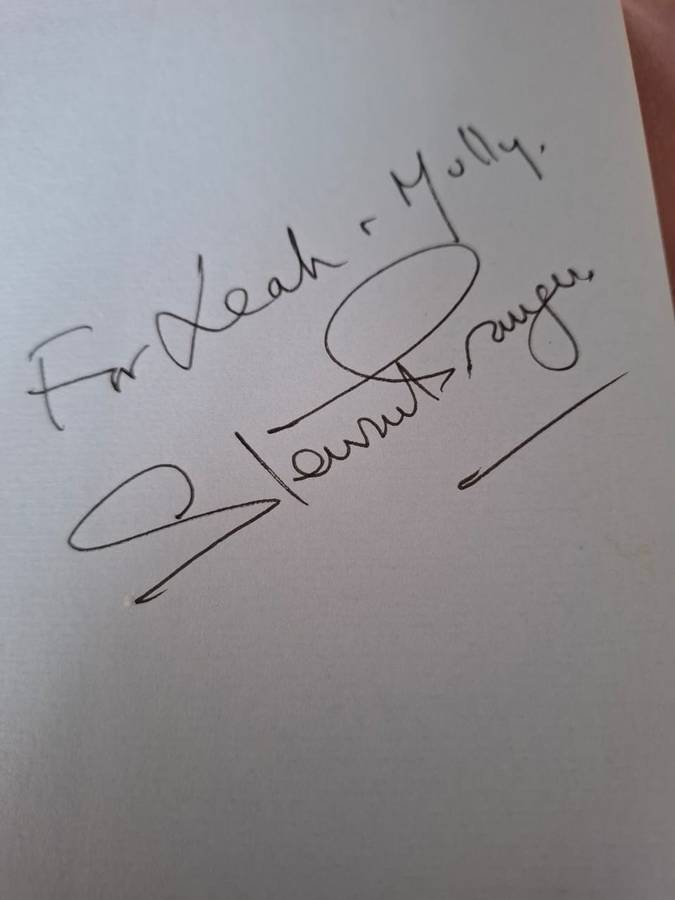 For Leah + Molly.
Stewart Granger